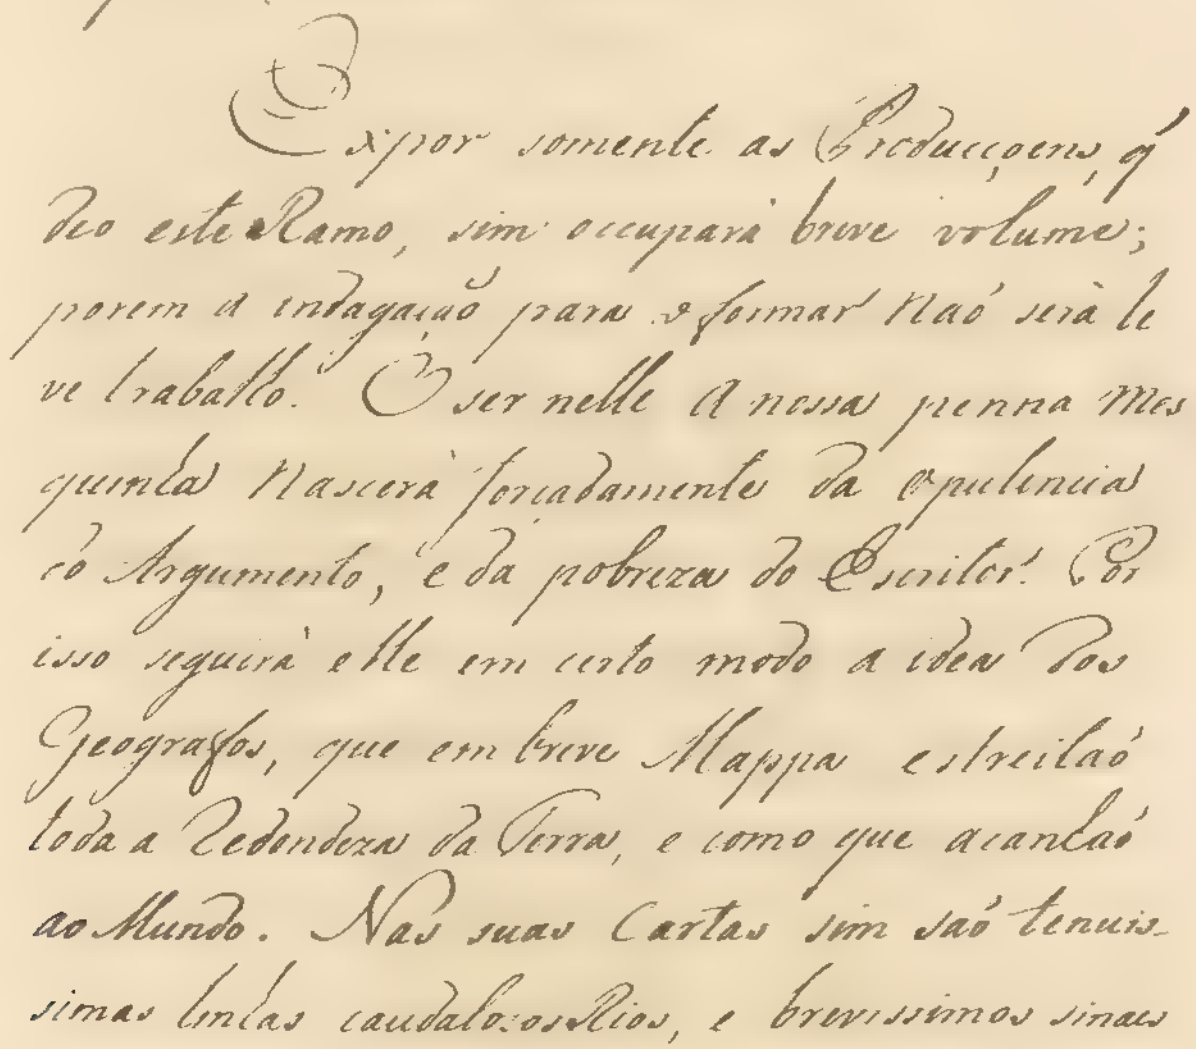 Expor somente as Producçoens, q̃
deo este Ramo, sim occuparà breve volume;
porem a indagação para o formar naõ serà le
ve trabalho. O ser nelle a nossa penna mes
quinha nascerà forçadamente da opulencia
do Argumento, e da pobreza do Escritor. Por
isso seguirà elle em certo modo a idea dos
Geografos, que em breve Mappa estreitaõ
toda a Redondeza da Terra, e como que acanhaõ
ao Mundo. Nas suas Cartas sim saõ tenuis-
simas linhas caudalozos Rios, e brevissimos sinaes